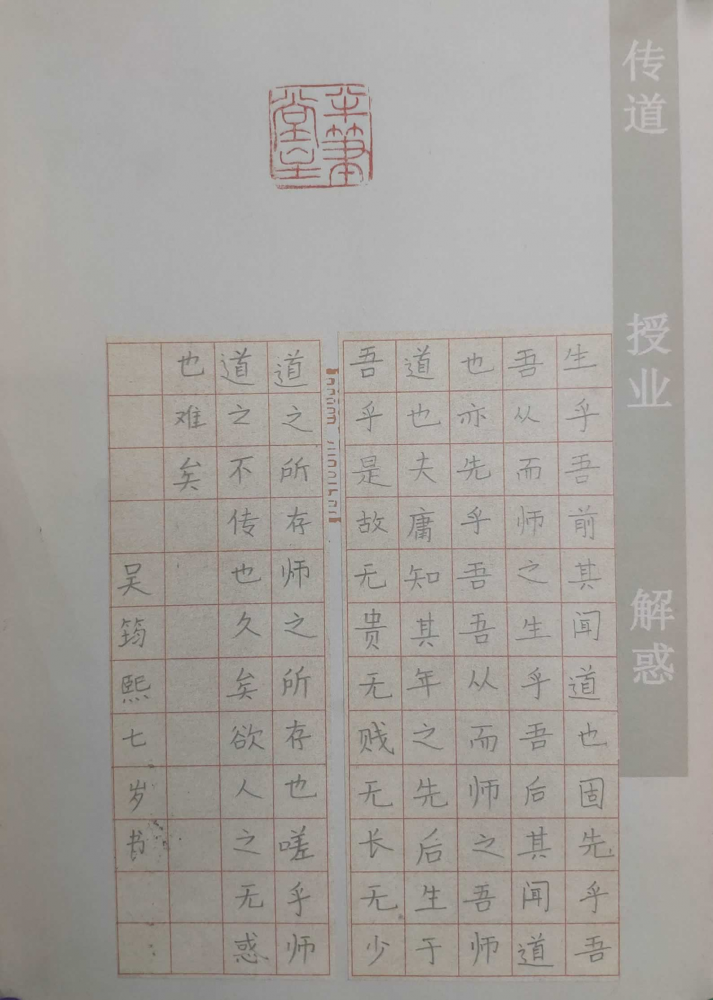 传道 授业 解惑
生乎吾前其闻道也固先乎吾
吾从而师之生乎吾后其闻道
也亦先乎吾吾从而师之吾师
道也夫庸知其年之先后生于
吾乎是故无贵无贱无长无少
道之所存师之所存也嗟乎师
道之不传也久矣欲人之无惑
也难矣
吴筠熙七岁书